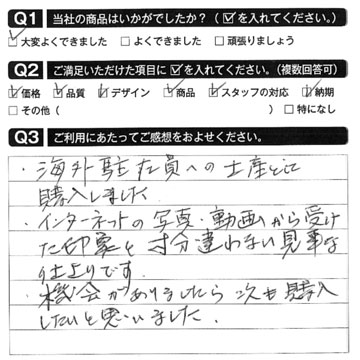 Q1 当社の商品はいかがでしたか？（☑を入れてください。）
☑大変よくできました □よくできました □頑張りましょう
Q2 ご満足いただけた項目に☑を入れてください。（複数回答可）
☑価格 ☑品質 ☑デザイン ☑商品 ☑スタッフの対応 ☑納期
□その他（ ）□特になし
Q3 ご利用にあたってご感想をおよせください。
・海外駐在員への土産として
購入しました
・インターネットの写真・動画から受け
た印象と寸分違わない見事な
仕上りです.
・機会がありましたら次も購入
したいと思いました.